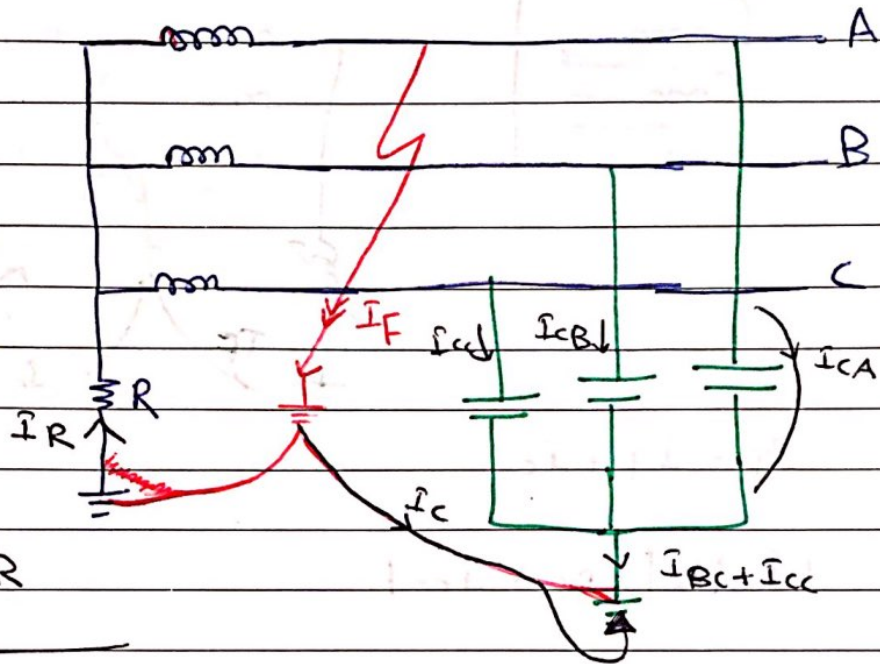 A
B
C
I F
I cc
I cB
I CA
R
I R
I C
I BC + I CC
R